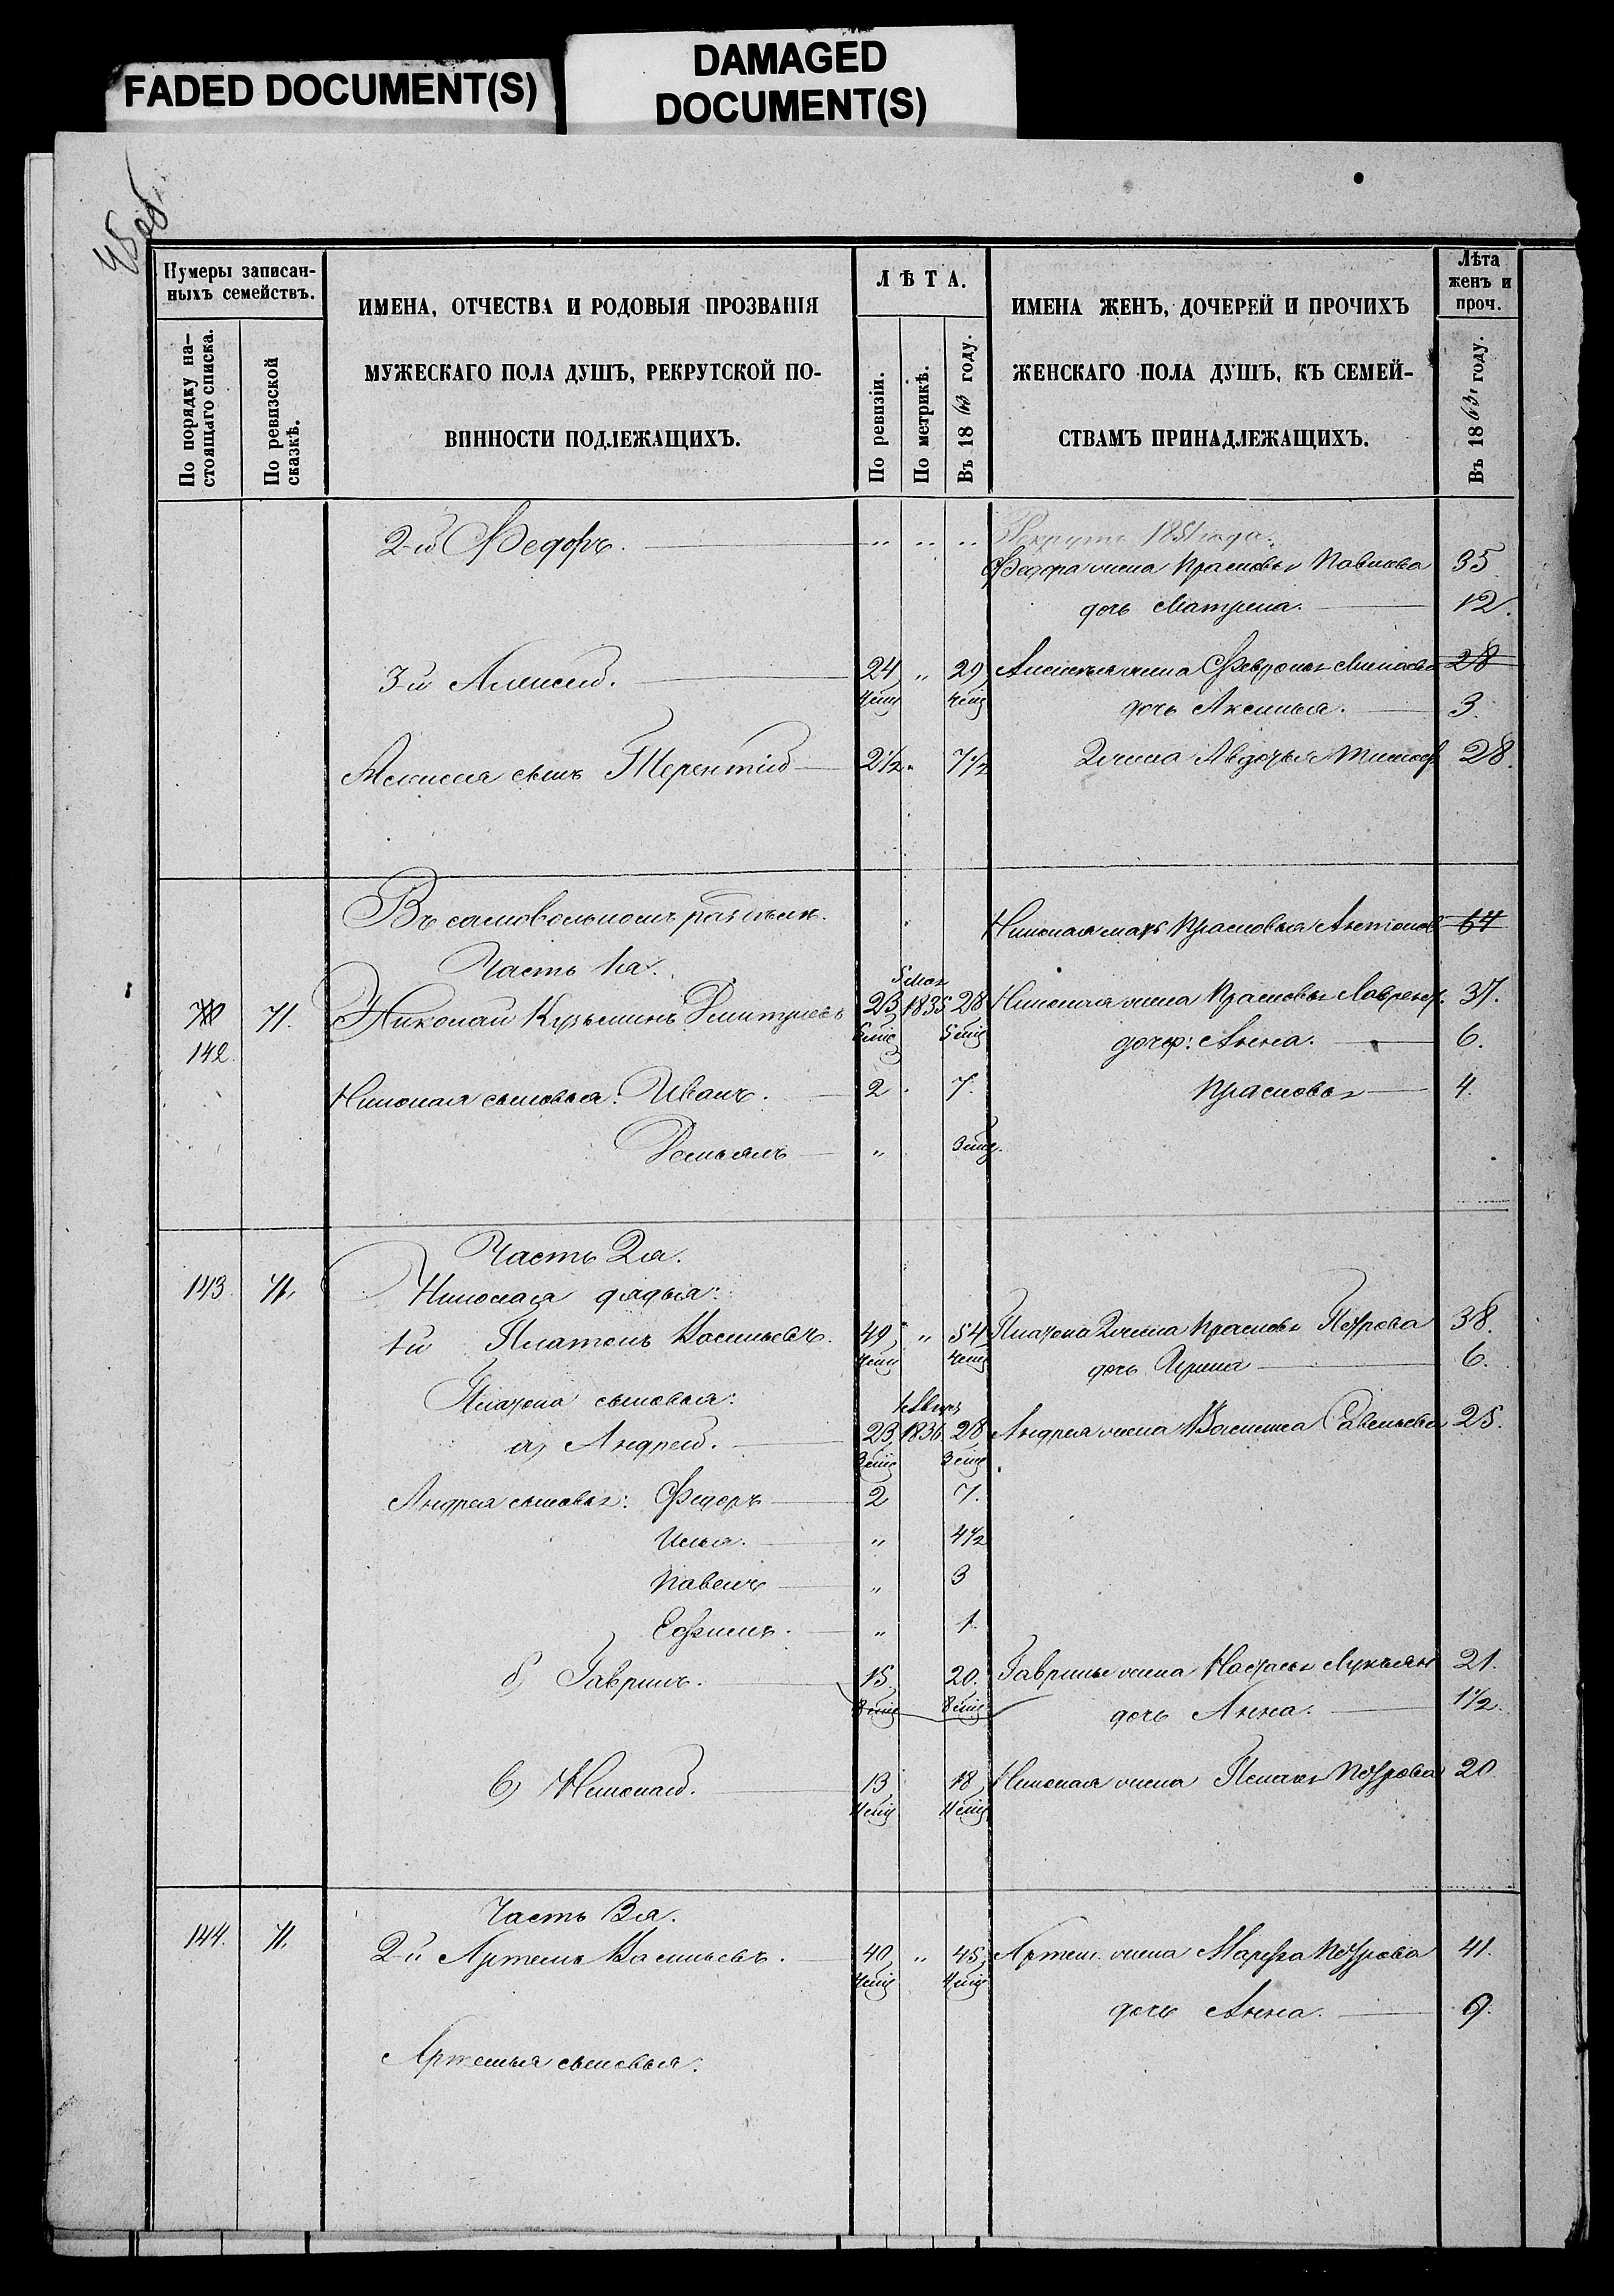 FADED DOCUMENT(S)
DAMAGED
DOCUMENT(S)
45 об.
Нумеры записан-
ныхъ семействъ.
По порядку на-
стоящаго списка.
По ревизской
сказкѣ.
ИМЕНА, ОТЧЕСТВА И РОДОВЫЯ ПРОЗВАНІЯ
МУЖЕСКАГО ПОЛА ДУШЪ, РЕКРУТСКОЙ ПО-
ВИННОСТИ ПОДЛЕЖАЩИХЪ.
ЛѢТА.
По ревизіи.
По метрикѣ.
Въ 1863 году.
ИМЕНА ЖЕНЪ, ДОЧЕРЕЙ И ПРОЧИХЪ
ЖЕНСКАГО ПОЛА ДУШЪ, КЪ СЕМЕЙ-
СТВАМЪ ПРИНАДЛЕЖАЩИХЪ.
Лѣта
женъ и
проч.
Въ 1863 году.
2-й Федоръ. " " " Рекрутъ 1851 года.
Федора жена Прасковья Павлова 35
дочь Матрена. 12.
3й Алексей. 24 " 29 Алексея жена Февронья 28
4 мц 4 мц дочь Аксинья. 3.
Алексея сынъ Терентий 2½ " 7½ 2 жена Авдотья Тимоф 28.
Въ самовольномъ разделе.
Николая мать Прасковья Антонов 64
Часть 1я.
5 мая
70 71. Николай Кузьминъ Дмитриевъ 23 1835 28 Николая жена Прасковья Лаврент. 37.
142. 5 мц дочер: Анна. 6.
Николая сыновья: Иванъ. 2 7. Прасковья 4.
Демьянъ " 3 мц.
Часть 2я.
143. 71. Николая дядья:
1й Платонъ Васильевъ. 49 " 54 Платона 2 жена Прасковья Петрова 38.
4 мц 4 мц дочь Ирина 6.
Платона сыновья:
а) Андрей. 23 1836 28 Андрея жена Василиса Савельева 25.
3 мц 3 мц
Андрея сыновья: Федоръ 2 7.
Илья. " 4½
Павелъ " 3
Ефимъ. " 1.
б) Гаврилъ. 15. 20. Гаврилы жена Настасья Лукьян 21.
8 мц 8 мц дочь Анна. 1½.
в) Николай. 13 18 Николая жена Пелагея Петрова 20
Часть 3я.
144. 71. 2-й Артемъ Васильевъ. 40 " 45 Артем. жена Марфа Петрова 41.
4 мц 4 мц
дочь Анна. 9.
Артемья сыновья: